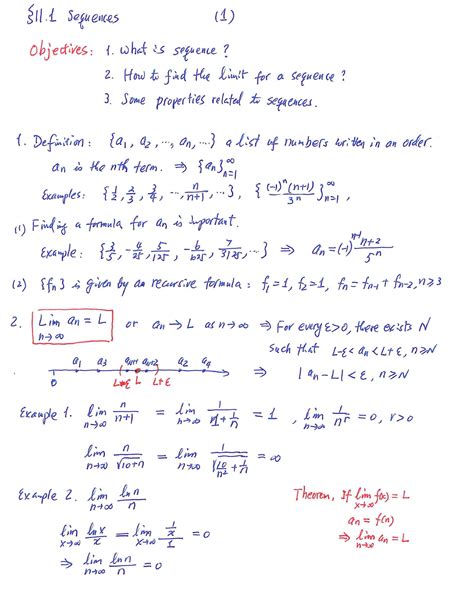 §11.1 Sequences (1)
Objectives: 1. What is sequence?
2. How to find the limit for a sequence?
3. Some properties related to sequences.
1. Definition: {a₁, a₂, ..., aₙ, ...} a list of numbers written in an order.
aₙ is the nth term. ⇒ {aₙ}ₙ₌₁^∞
Examples: {1/2, 2/3, 3/4, ..., n/(n+1), ...}, {(-1)ⁿ(n+1)/3ⁿ}ₙ₌₁^∞,
(1) Finding a formula for aₙ is important.
Example: {3/5, -4/25, 5/125, -6/625, 7/3125, ...} ⇒ aₙ = (-1)ⁿ⁻¹ (n+2)/5ⁿ
(2) {fₙ} is given by an recursive formula: f₁ = 1, f₂ = 1, fₙ = fₙ₋₁ + fₙ₋₂, n ≥ 3
2. Lim aₙ = L n→∞ or aₙ → L as n→∞ ⇒ For every ε>0, there exists N
such that L-ε < aₙ < L+ε, n ≥ N
a₁ a₃ aₙ₊₁ aₙ₊₂ a₂ a₄
0 L-ε L L+ε ⇒ |aₙ - L| < ε, n ≥ N
Example 1. lim n→∞ n/(n+1) = lim n→∞ 1/(1+1/n) = 1, lim n→∞ 1/nʳ = 0, r>0
lim n→∞ n/√(10+n) = lim n→∞ 1/√(10/n² + 1/n) = ∞
Example 2. lim n→∞ ln n/n
Theorem, If lim x→∞ f(x) = L
lim x→∞ ln x/x = lim x→∞ (1/x)/1 = 0
aₙ = f(n)
⇒ lim n→∞ ln n/n = 0
⇒ lim n→∞ aₙ = L